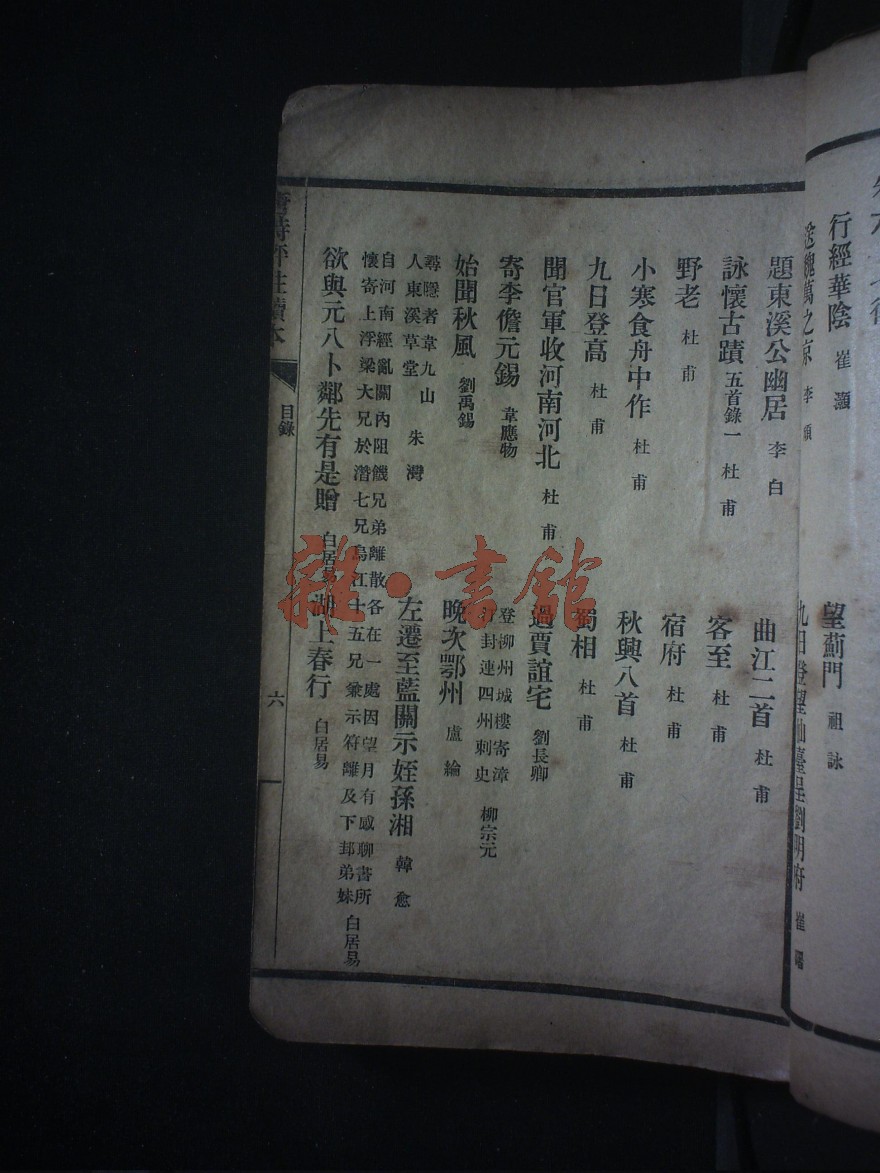 行經華陰 崔灝
望薊門 祖詠
送魏萬之京 李頎
九日登望仙臺呈劉明府 崔曙
題東溪公幽居 李白
曲江二首 杜甫
詠懷古蹟 五首錄一 杜甫
客至 杜甫
野老 杜甫
宿府 杜甫
小寒食舟中作 杜甫
秋興八首 杜甫
九日登高 杜甫
蜀相 杜甫
聞官軍收河南河北 杜甫
過賈誼宅 劉長卿
寄李儋元錫 韋應物
登柳州城樓寄漳
汀封連四州刺史 柳宗元
始聞秋風 劉禹錫
晚次鄂州 盧綸
尋隱者韋九山
人東溪草堂 朱灣
左遷至藍關示姪孫湘 韓愈
自河南經亂關內阻饑兄弟離散各在一處因望月有感聊書所
懷寄上浮梁大兄於潛七兄烏江十五兄兼示符離及下邽弟妹 白居易
欲與元八卜鄰先有是贈 白居易
湖上春行 白居易
唐詩評註讀本
目錄
六
雜·書館